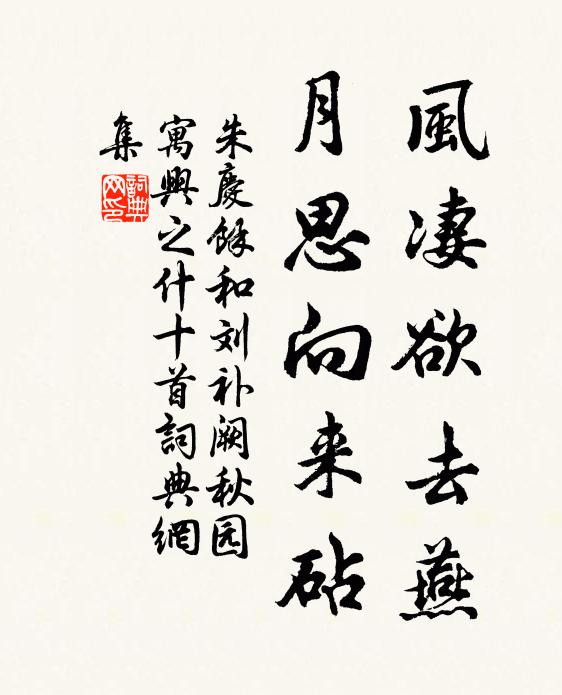 風凄欲去燕
月思向来砧
朱慶餘和刘补阙秋园
寓興之什十首詞典網
集
詞典
网印